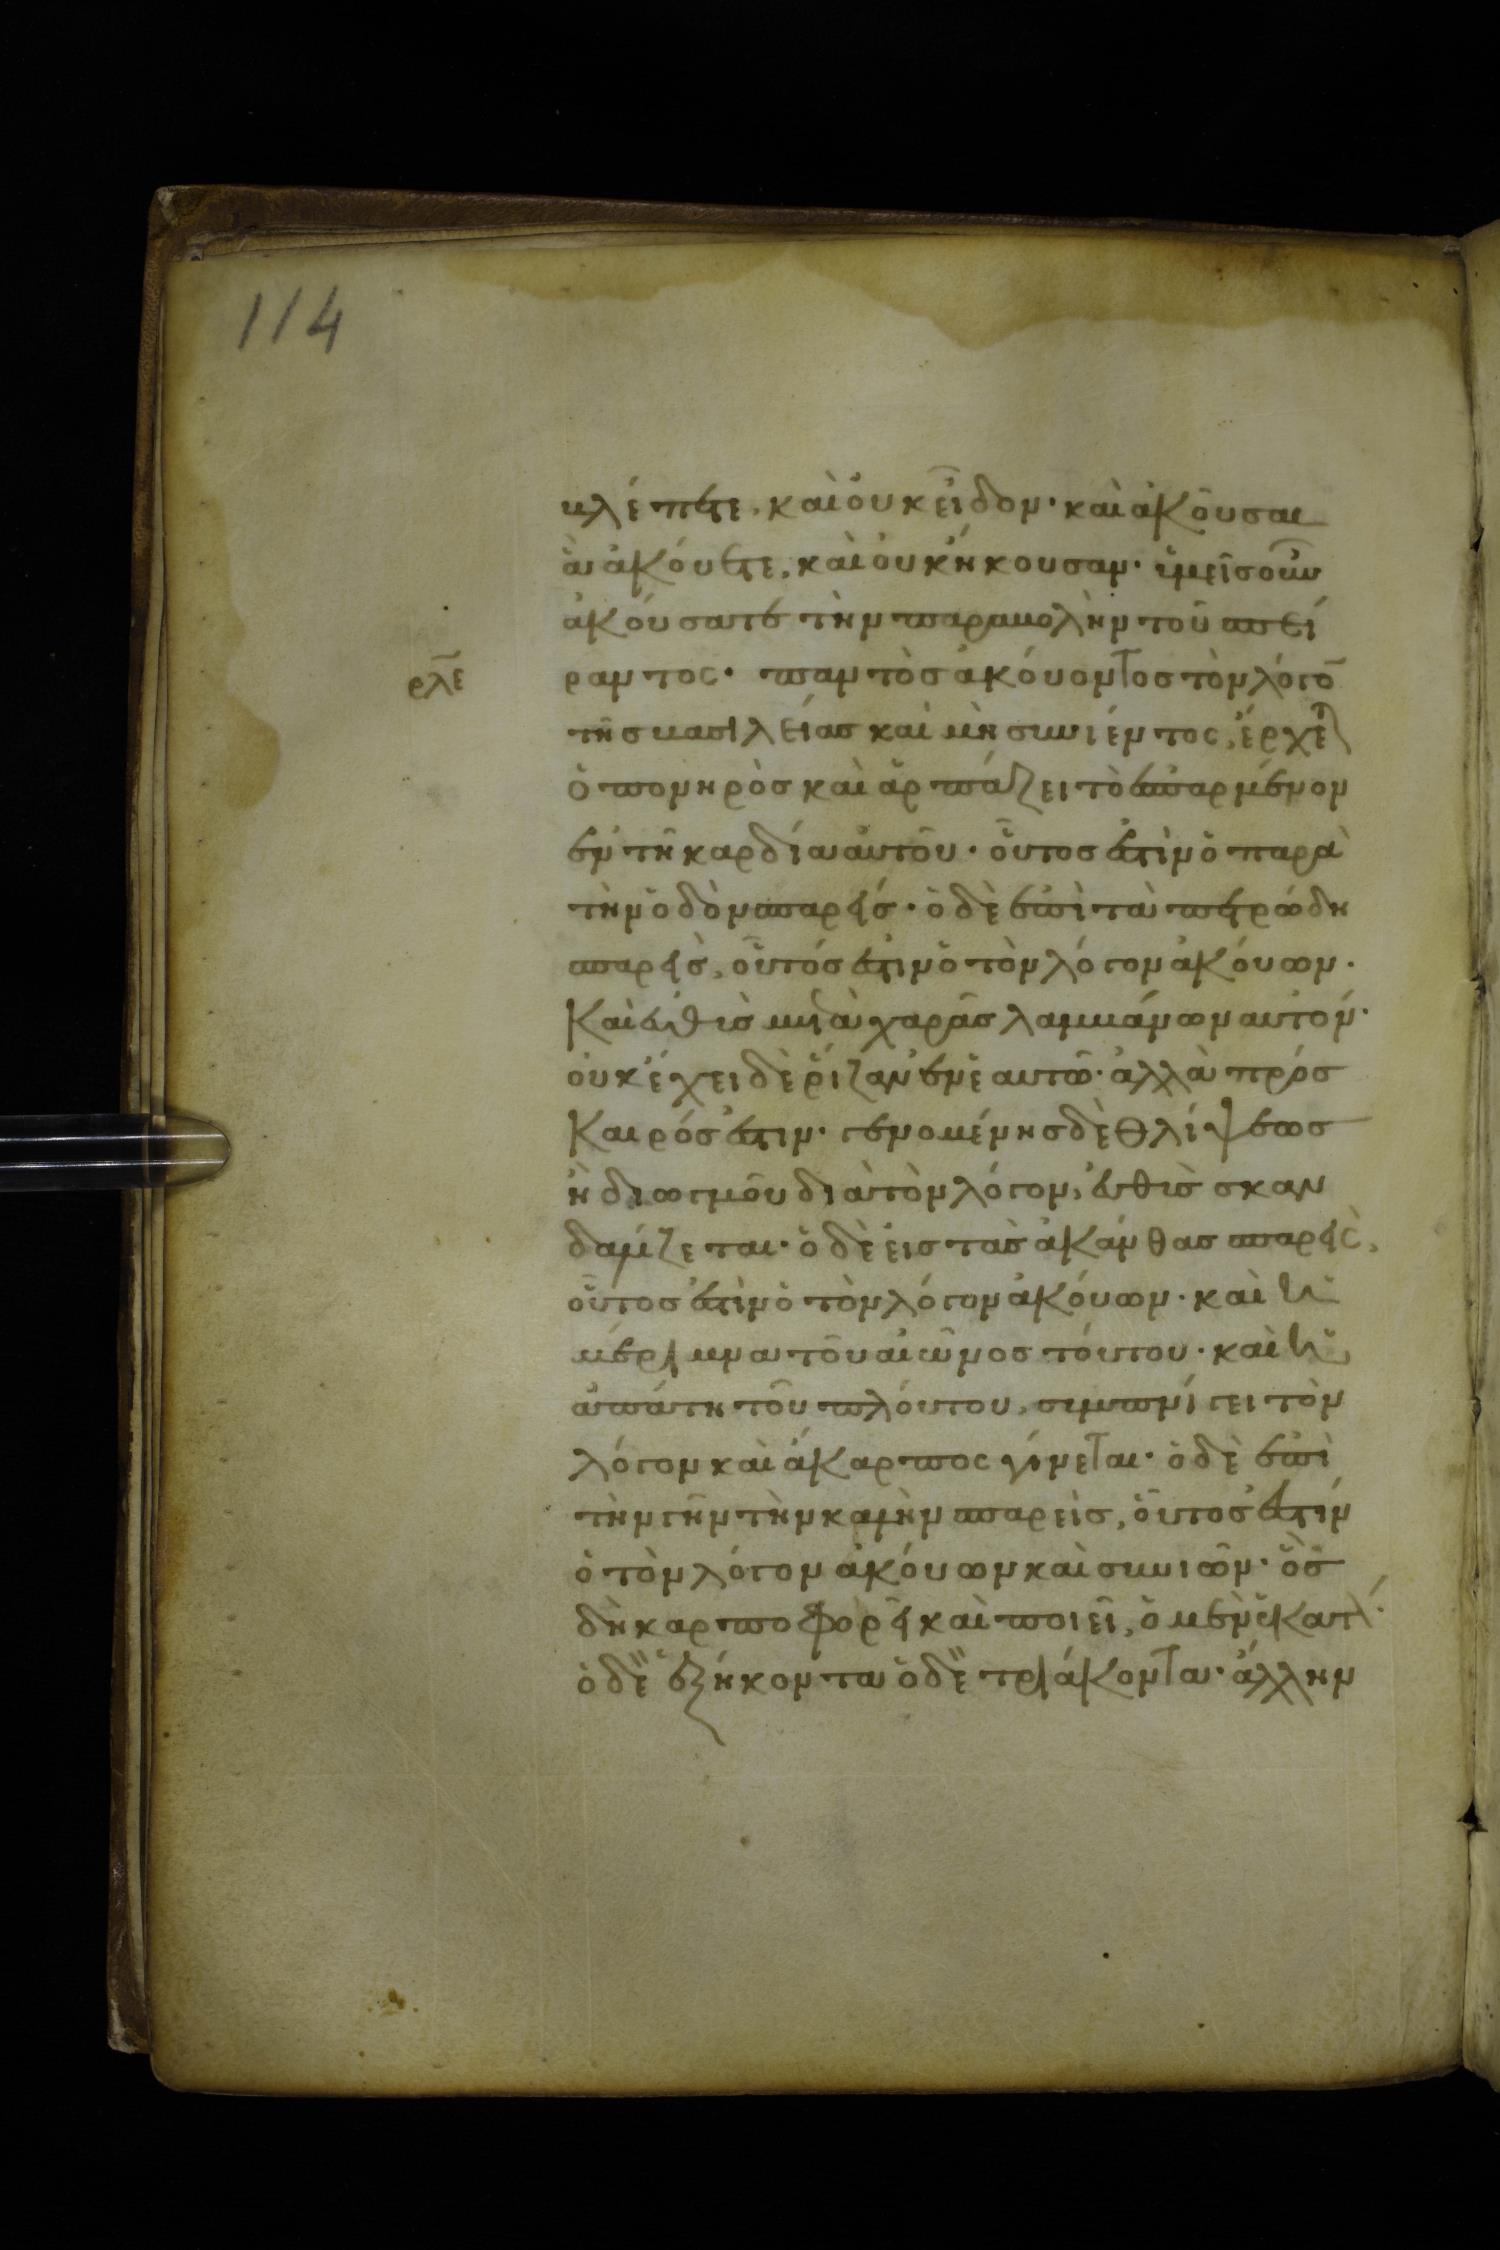 114
βλέπετε, καὶ οὐκ εἶδον· καὶ ἀκοῦσαι
ἃ ἀκούετε, καὶ οὐκ ἤκουσαν· ὑμεῖς οὖν
ἀκούσατε τὴν παραβολὴν τοῦ σπεί
ρλε ραντος· παντὸς ἀκούοντος τὸν λόγο̅
τῆς βασιλείας καὶ μὴ συνιέντος, ἔρχετ
ὁ πονηρὸς καὶ ἁρπάζει τὸ ἐσπαρμένον
ἐν τῆ καρδία αὐτοῦ· οὗτος ἐστὶν ὁ παρὰ
τὴν ὁδὸν σπαρείς· ὁ δὲ ἐπὶ τὰ πετρώδη
σπαρεὶς, οὗτός ἐστιν ὁ τὸν λόγον ἀκούων·
Καὶ εὐθὺς μετὰ χαρᾶς λαμβάνων αὐτόν·
οὐκ ἔχει δὲ ῥίζαν ἐν ἑαυτῶ· ἀλλὰ πρόσ
Καιρός ἐστιν· γενομένης δὲ θλίψεως
ἢ διωγμοῦ διὰ τὸν λόγον, εὐθὺς σκαν
δαλίζεται· ὁ δὲ εἰς τὰς ἀκάνθας σπαρεὶς,
οὗτος ἐστὶν ὁ τὸν λόγον ἀκούων· καὶ ἡ
μέριμνα τοῦ αἰῶνος τούτου· καὶ ἡ
ἀπάτη τοῦ πλούτου, συμπνίγει τὸν
λόγον καὶ ἄκαρπος γίνεται· ὁ δὲ ἐπὶ
τὴν γῆν τὴν καλὴν σπαρεὶς, οὗτος ἐστίν
ὁ τὸν λόγον ἀκούων καὶ συνιῶν· ὃς
δὴ καρποφορεῖ καὶ ποιεῖ, ὁ μὲν ἑκατ·
ὁ δὲ ἑξήκοντα ὁ δὲ τριάκοντα· ἄλλην